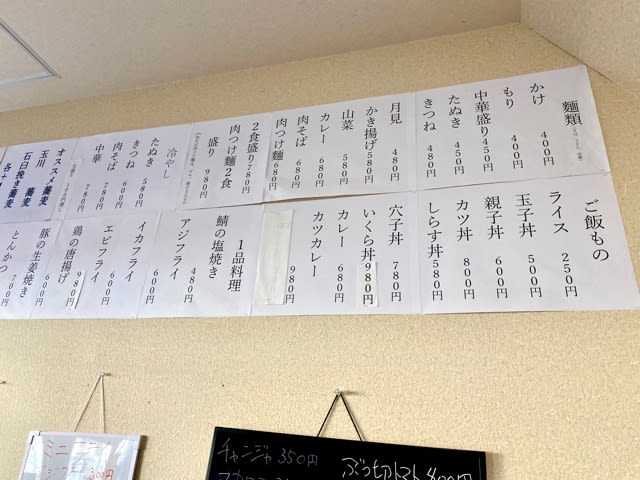 麺類
かけ 400円
もり 400円
中華盛り 450円
たぬき 450円
きつね 480円
月見 480円
かき揚げ 580円
山菜 580円
カレー 680円
肉そば 680円
肉つけ麺 680円
2食盛り 780円
肉つけ麺2食
盛り 980円
冷やし
たぬき 580円
きつね 600円
肉そば 780円
中華 780円
オススメ蕎麦
玉川 蕎麦
石臼挽き蕎麦
ご飯もの
ライス 250円
玉子丼 500円
親子丼 600円
カツ丼 800円
しらす丼 580円
穴子丼 780円
いくら丼 980円
カレー 680円
カツカレー 980円
1品料理
鯖の塩焼き 480円
アジフライ
イカフライ 600円
エビフライ 600円
鶏の唐揚げ 980円
豚の生姜焼き 600円
とんかつ 700円
チャンジャ 350円
ぶつ切りトマト 400円